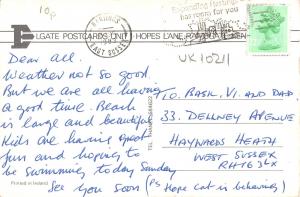 10p
HASTINGS
EAST SUSSEX
Expanding Hastings
has room for you
ELGATE POSTCARDS UNIT HOPES LANE RAMSGATE
UK10211
Dear all.
Weather not so good.
But we are all having
a good time. Beach
is large and beautiful
Kids are having great
fun and hoping to
be swimming today Sunday
See you soon (PS Hope cat is behaving)
TO. BASK. VI. AND DAD.
33. DELLNEY AVENUE
HAYWARDS HEATH
WEST SUSSEX
RH16 3LX
Printed in Ireland